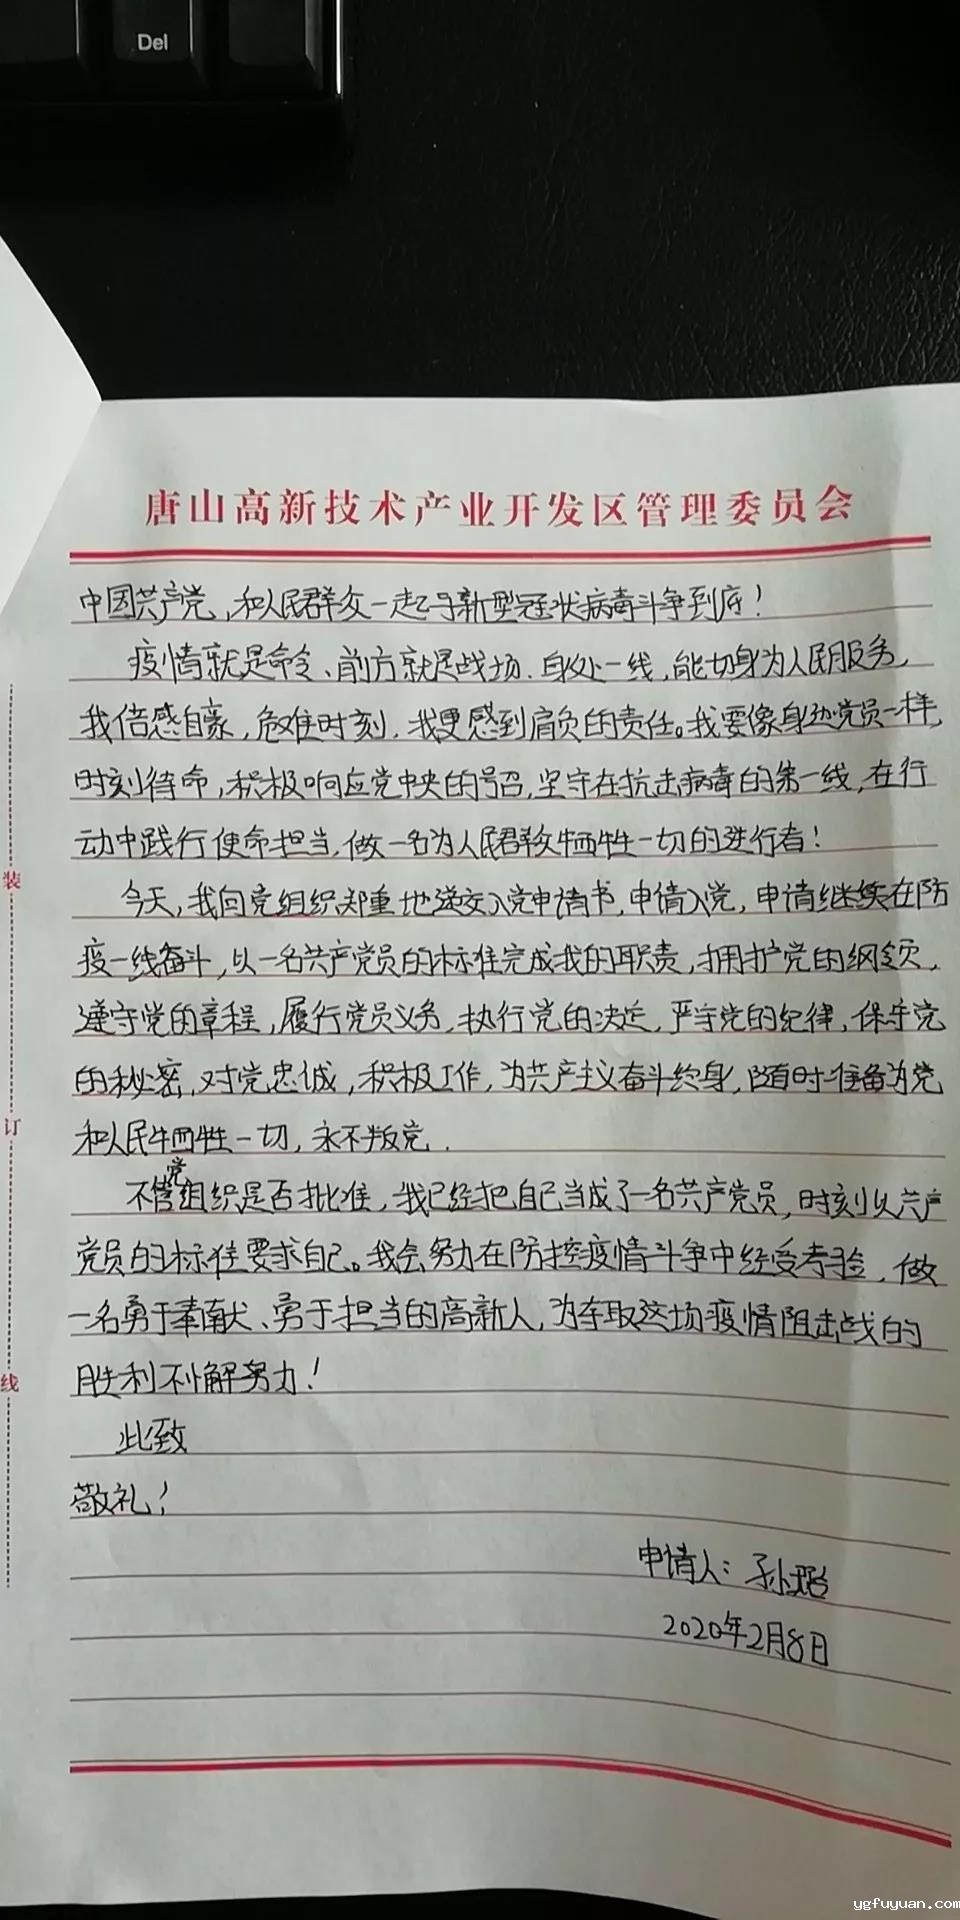 Del
唐山高新技术产业开发区管理委员会
中国共产党，和人民群众一起与新型冠状病毒斗争到底！
疫情就是命令、前方就是战场．身处一线，能切身为人民服务，
我倍感自豪，危难时刻，我更感到肩负的责任。我要像身边党员一样，
时刻待命，积极响应党中央的号召，坚守在抗击病毒的第一线，在行
动中践行使命担当，做一名为人民群众牺牲一切的逆行者！
今天，我向党组织郑重地递交入党申请书，申请入党，申请继续在防
疫一线奋斗，以一名共产党员的标准完成我的职责，拥护党的纲领，
遵守党的章程，履行党员义务，执行党的决定，严守党的纪律，保守党
的秘密，对党忠诚，积极工作，为共产主义奋斗终身，随时准备为党
和人民牺牲一切，永不叛党．
不管党组织是否批准，我已经把自己当成了一名共产党员，时刻以共产
党员的标准要求自己。我会努力在防控疫情斗争中经受考验，做
一名勇于奉献、勇于担当的高新人，为夺取这场疫情阻击战的
胜利不懈努力！
此致
敬礼！
申请人：孙璐
2020年2月8日
装
订
线
ygfuyuan.com